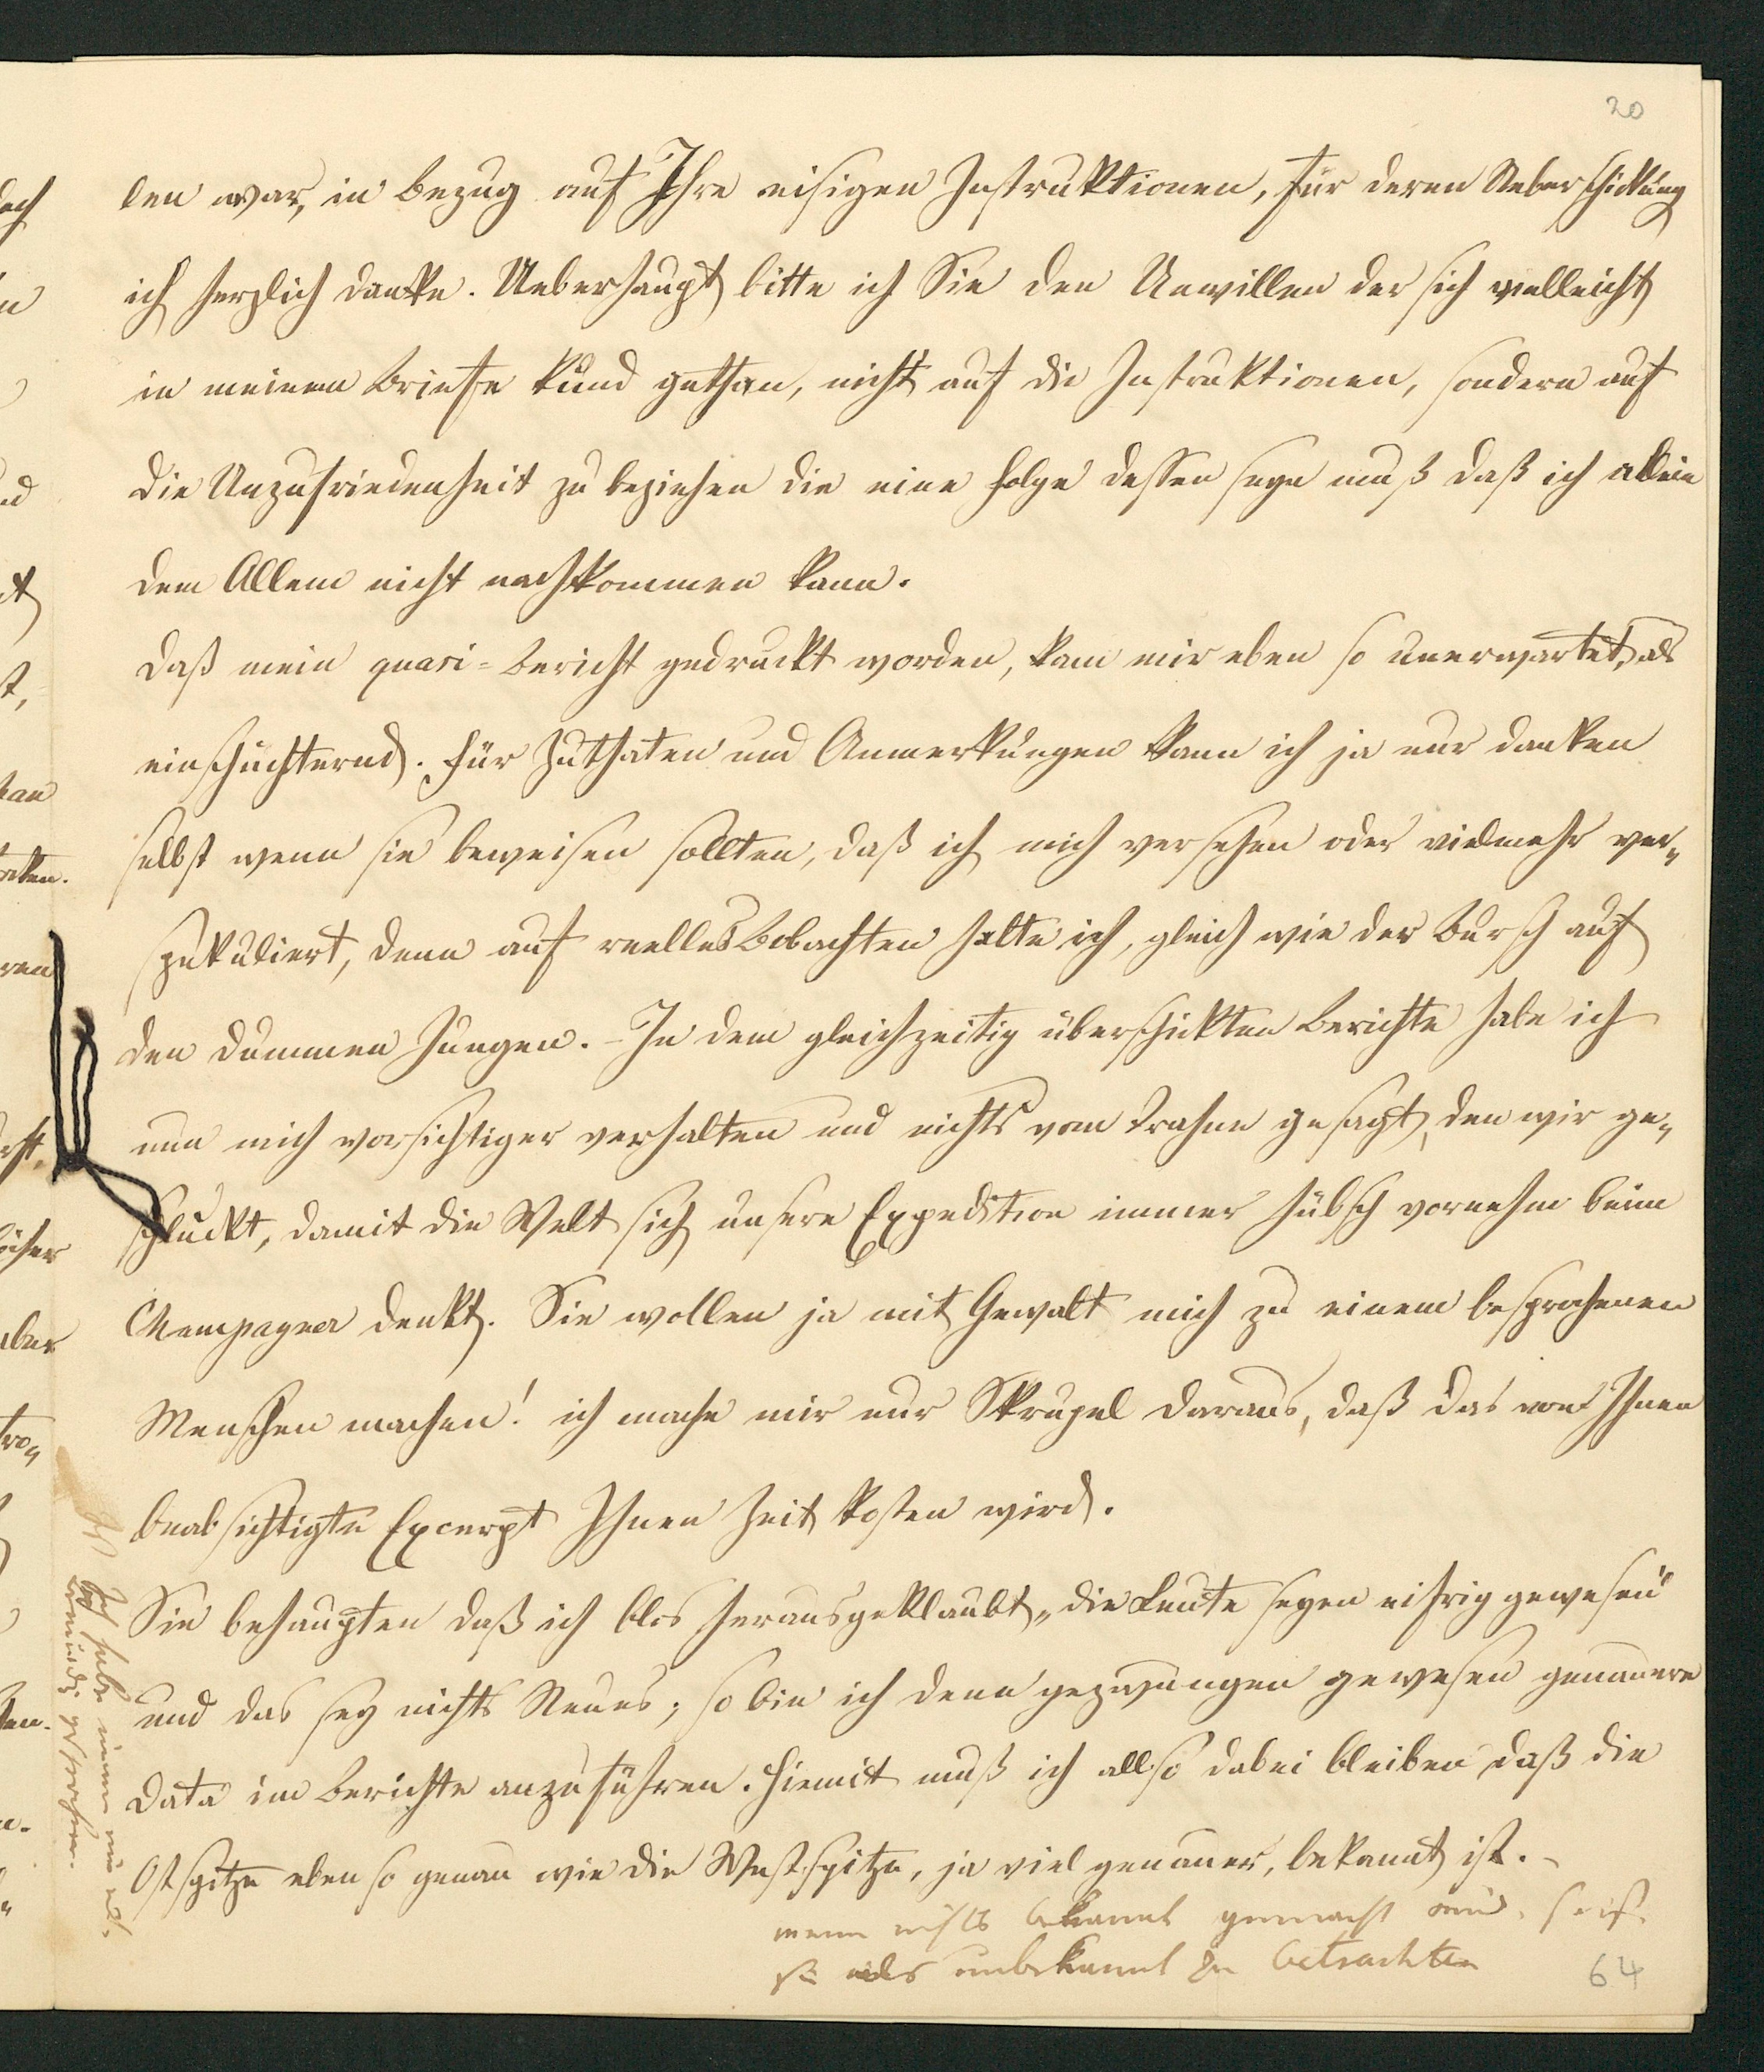 20
len war, in Bezug auf Ihre eisigen Instruktionen, für deren Ueberschickung
ich herzlich danke. Ueberhaupt bitte ich Sie den Unwillen der sich vielleicht
in meinem Briefe kund gethan, nicht auf die Instruktionen, sondern auf
die Unzufriedenheit zu beziehen die eine Folge dessen seyn muß daß ich allein
dem Allem nicht nachkommen kann.
Daß mein quasi-Bericht gedruckt worden, kam mir eben so unerwartet, als
einschüchternd. Für Zuthaten und Anmerkungen kann ich ja nur danken
selbst wenn sie beweisen sollten, daß ich mich versehen oder vielmehr ver„
spekuliert, denn auf reelles Bobachten halte ich, gleich wie der Bursch auf
den dummen Jungen. – In dem gleichzeitig überschickten Berichte habe ich
nun mich vorsichtiger verhalten und nichts vom Trahne gesagt, den wir ge„
schluckt, damit die Welt sich unsere Expedition immer hübsch vornehm beim
Champagner denkt. Sie wollen ja mit Gewalt mich zu einem besprochenen
Menschen machen! ich mache mir nur Skrupel daraus, daß das von Ihnen
beabsichtigte Excerpt Ihnen Zeit kosten wird.
Sie behaupten daß ich blos herausgeklaubt „die Leute seyen eifrig gewesen"
und das sey nichts Neues; so bin ich denn gezwungen gewesen genauere
Data im Berichte anzuführen. Hiemit muß ich allso dabei bleiben daß die
Ostspitze eben so genau wie die Westspitze, ja viel genauer, bekannt ist. –
wenn nichts bekannt gemacht wird, so ist
sie als unbekannt zu betrachten
64
Ich habe immer nur
gesprochen.